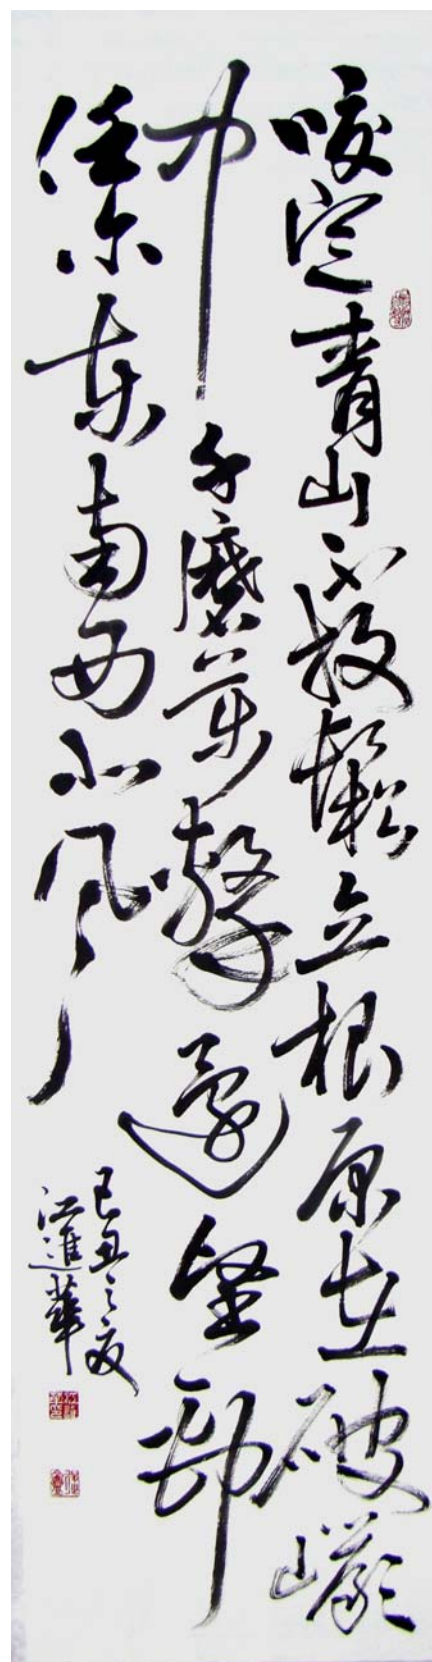 咬定青山不放鬆立根原在破巖
中千磨萬擊還堅勁
任尔東南西北風
己丑之夏
江進華